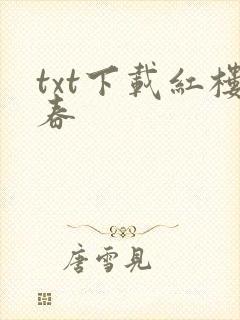 txt下載紅樓
春
唐雪見